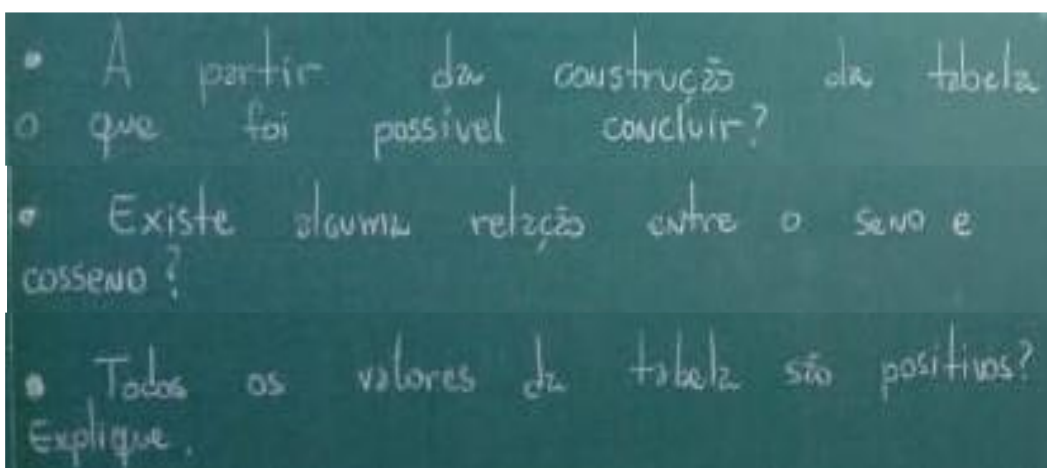 • A partir da construção da tabela
o que foi possível concluir?
• Existe alguma relação entre o seno e
cosseno?
• Todos os valores da tabela são positivos?
Explique.